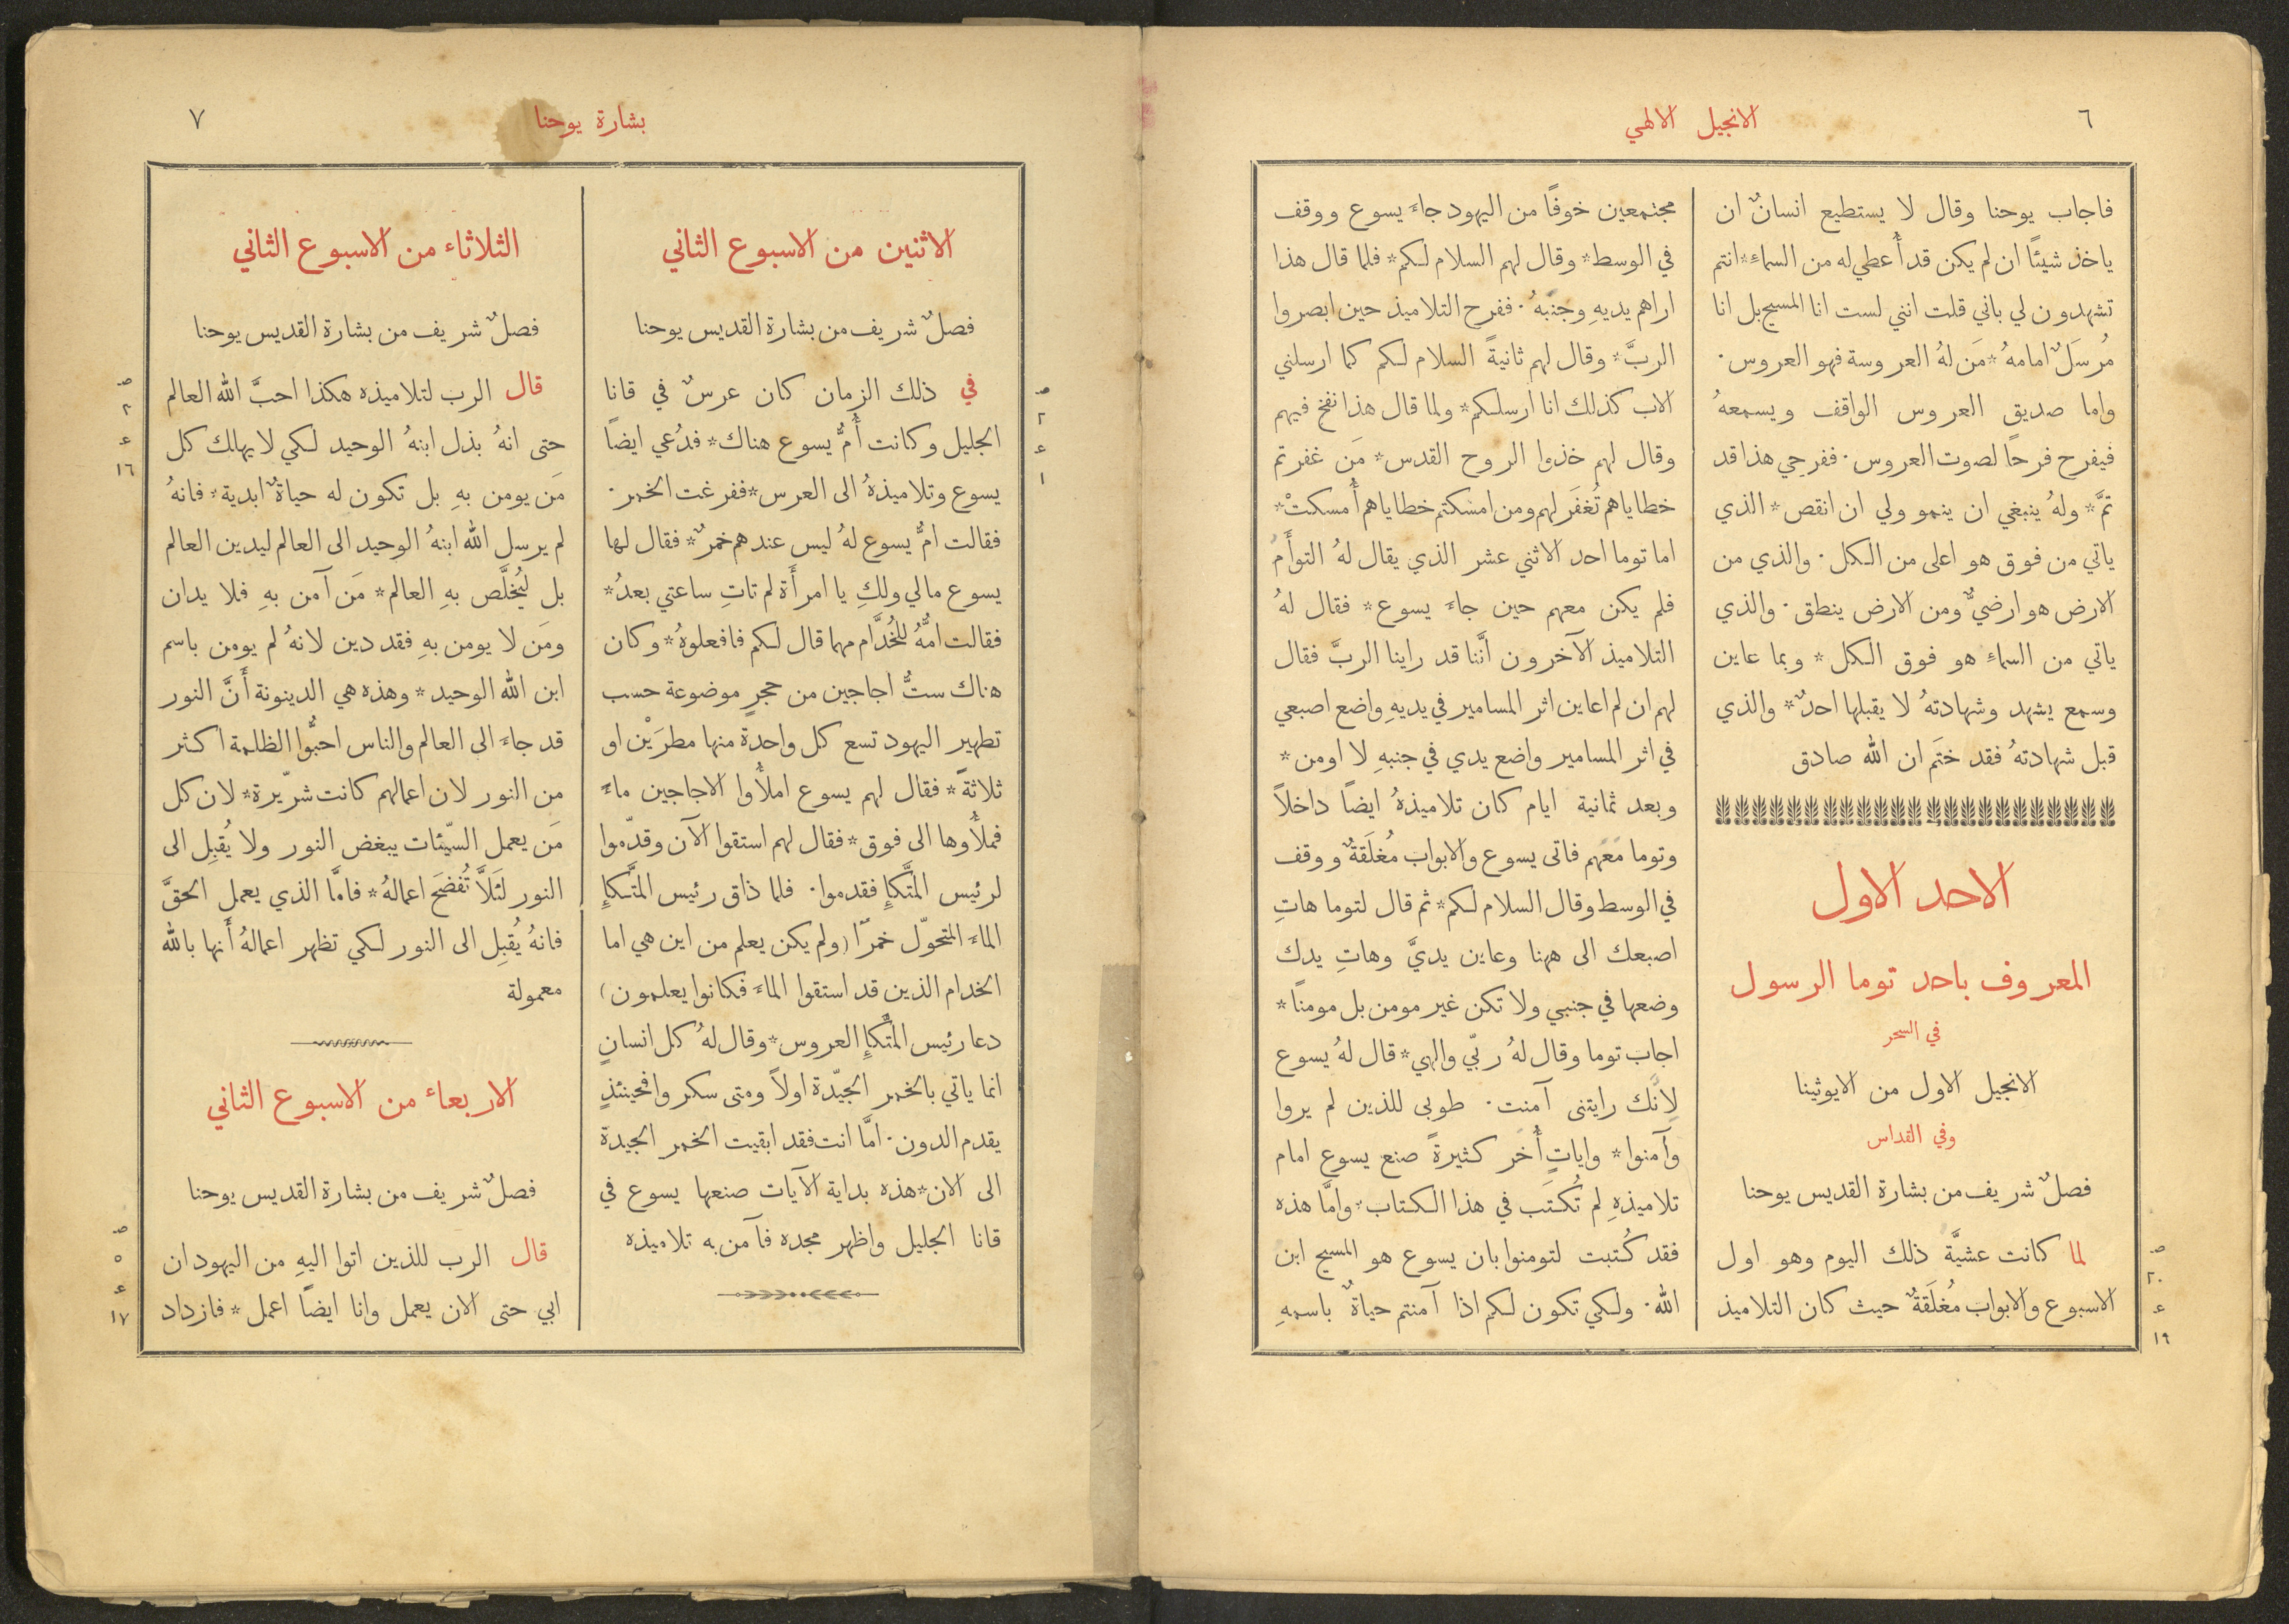 ٦
الانجيل الالهي
فاجاب يوحنا وقال لا يستطيع انسانٌ ان
ياخذ شيئًا ان لم يكن قد أُعطي له من السماءِ * انتم
تشهدون لي باني قلت انني لست انا المسيح بل انا
مُرسَلٌ امامهُ * مَن لهُ العروسة فهو العروس ·
واما صديق العروس الواقف ويسمعهُ
فيفرح فرحًا لصوت العروس · ففرحي هذا قد
تمَّ * ولهُ ينبغي ان ينمو ولي ان انقص * الذي
ياتي من فوق هو اعلى من الكل · والذي من
الارض هو ارضيٌّ ومن الارض ينطق · والذي
ياتي من السماءِ هو فوق الكل * وبما عاين
وسمع يشهد وشهادتهُ لا يقبلها احدٌ * والذي
قبل شهادتهُ فقد ختَم ان الله صادق
الاحد الاول
المعروف باحد توما الرسول
في السحر
الانجيل الاول من الايوثينا
وفي القداس
فصلٌ شريف من بشارة القديس يوحنا
لما كانت عشيَّة ذلك اليوم وهو اول
الاسبوع والابواب مُغلَقةٌ حيث كان التلاميذ
ص
٢٠
ع
١٩
مجتمعين خوفًا من اليهود جاءَ يسوع ووقف
في الوسط * وقال لهم السلام لكم * فلما قال هذا
اراهم يديهِ وجنبهُ · ففرح التلاميذ حين ابصروا
الربَّ * وقال لهم ثانيةً السلام لكم كما ارسلني
الاب كذلك انا ارسلكم * ولما قال هذا نفخ فيهم
وقال لهم خذوا الروح القدس * مَن غفرتم
خطاياهم تُغفَر لهم ومن امسكتم خطاياهم أُمسكتْ *
اما توما احد الاثني عشر الذي يقال لهُ التوأَمُ
فلم يكن معهم حين جاءَ يسوع * فقال لهُ
التلاميذ الآخرون أنَّنا قد راينا الربَّ فقال
لهم ان لم اعاين اثر المسامير في يديهِ واضع اصبعي
في اثر المسامير واضع يدي في جنبهِ لا اومن *
وبعد ثمانية ايام كان تلاميذهُ ايضًا داخلاً
وتوما معهم فاتى يسوع والابواب مُغلَقةٌ ووقف
في الوسط وقال السلام لكم * ثم قال لتوما هاتِ
اصبعك الى ههنا وعاين يديَّ وهاتِ يدك
وضعها في جنبي ولا تكن غير مومن بل مومنًا *
اجاب توما وقال لهُ ربّي والهي * قال لهُ يسوع
لِأنَّك رايتنى آمنت · طوبى للذين لم يروا
وآمنوا * واياتٍ أُخر كثيرةً صنع يسوع امام
تلاميذهِ لم تُكتَب في هذا الكتاب * وامَّا هذه
فقد كُتبت لتومنوا بان يسوع هو المسيح ابن
الله · ولكي تكون لكم اذا آمنتم حياةٌ باسمهِ
بشارة يوحنا
٧
الاثنين من الاسبوع الثاني
فصلٌ شريف من بشارة القديس يوحنا
في ذلك الزمان كان عرسٌ في قانا
الجليل وكانت أُمُّ يسوع هناك * فدُعي ايضًا
يسوع وتلاميذهُ الى العرس * ففرغت الخمر ·
فقالت امُّ يسوع لهُ ليس عندهم خمرٌ * فقال لها
يسوع مالي ولكِ يا امرأَة لم تاتِ ساعتي بعدُ *
فقالت امُّهُ للخُدَّام مهما قال لكم فافعلوهُ * وكان
هناك ستُّ اجاجين من حجرٍ موضوعة حسب
تطهير اليهود تسع كل واحدة منها مطرَيْن او
ثلاثةً * فقال لهم يسوع املأُوا الاجاجين ماءً
فملأُوها الى فوق * فقال لهم استقوا الآن وقدّموا
لرئيس المتَّكإِ فقدموا · فلما ذاق رئيس المتَّكإِ
الماءَ المتحوّل خمرًا (ولم يكن يعلم من اين هي اما
الخدام الذين قد استقوا الماءَ فكانوا يعلمون)
دعا رئيس المتَّكإِ العروس * وقال لهُ كل انسانٍ
انما ياتي بالخمر الجيّدة اولاً ومتى سكروا فحينئذٍ
يقدم الدون · امَّا انت فقد ابقيت الخمر الجيدة
الى الان * هذه بداية الآيات صنعها يسوع في
قانا الجليل واظهر مجده فآمن به تلاميذه
ص
٢
ع
١
الثلاثاء من الاسبوع الثاني
فصلٌ شريف من بشارة القديس يوحنا
قال الرب لتلاميذه هكذا احبَّ الله العالم
حتى انهُ بذل ابنهُ الوحيد لكي لا يهلك كل
مَن يومن بهِ بل تكون له حياةٌ ابدية * فانهُ
لم يرسل الله ابنهُ الوحيد الى العالم ليدين العالم
بل ليُخلَّص بهِ العالم * مَن آمن بهِ فلا يدان
ومَن لا يومن بهِ فقد دين لانهُ لم يومن باسم
ابن الله الوحيد * وهذه هي الدينونة أَنَّ النور
قد جاءَ الى العالم والناس احبُّوا الظلمة اكثر
من النور لان اعمالهم كانت شرّيرة * لان كل
مَن يعمل السيّئات يبغض النور ولا يُقبِل الى
النور لئَلاَّ تُفضَح اعمالهُ * فامَّا الذي يعمل الحقَّ
فانهُ يُقبِل الى النور لكي تظهر اعمالهُ أَنها بالله
معمولة
ص
٢
ع
١٦
الاربعاء من الاسبوع الثاني
فصلٌ شريف من بشارة القديس يوحنا
قال الرب للذين اتوا اليهِ من اليهود ان
ابي حتى الان يعمل وانا ايضًا اعمل * فازداد
ص
٥
ع
١٧